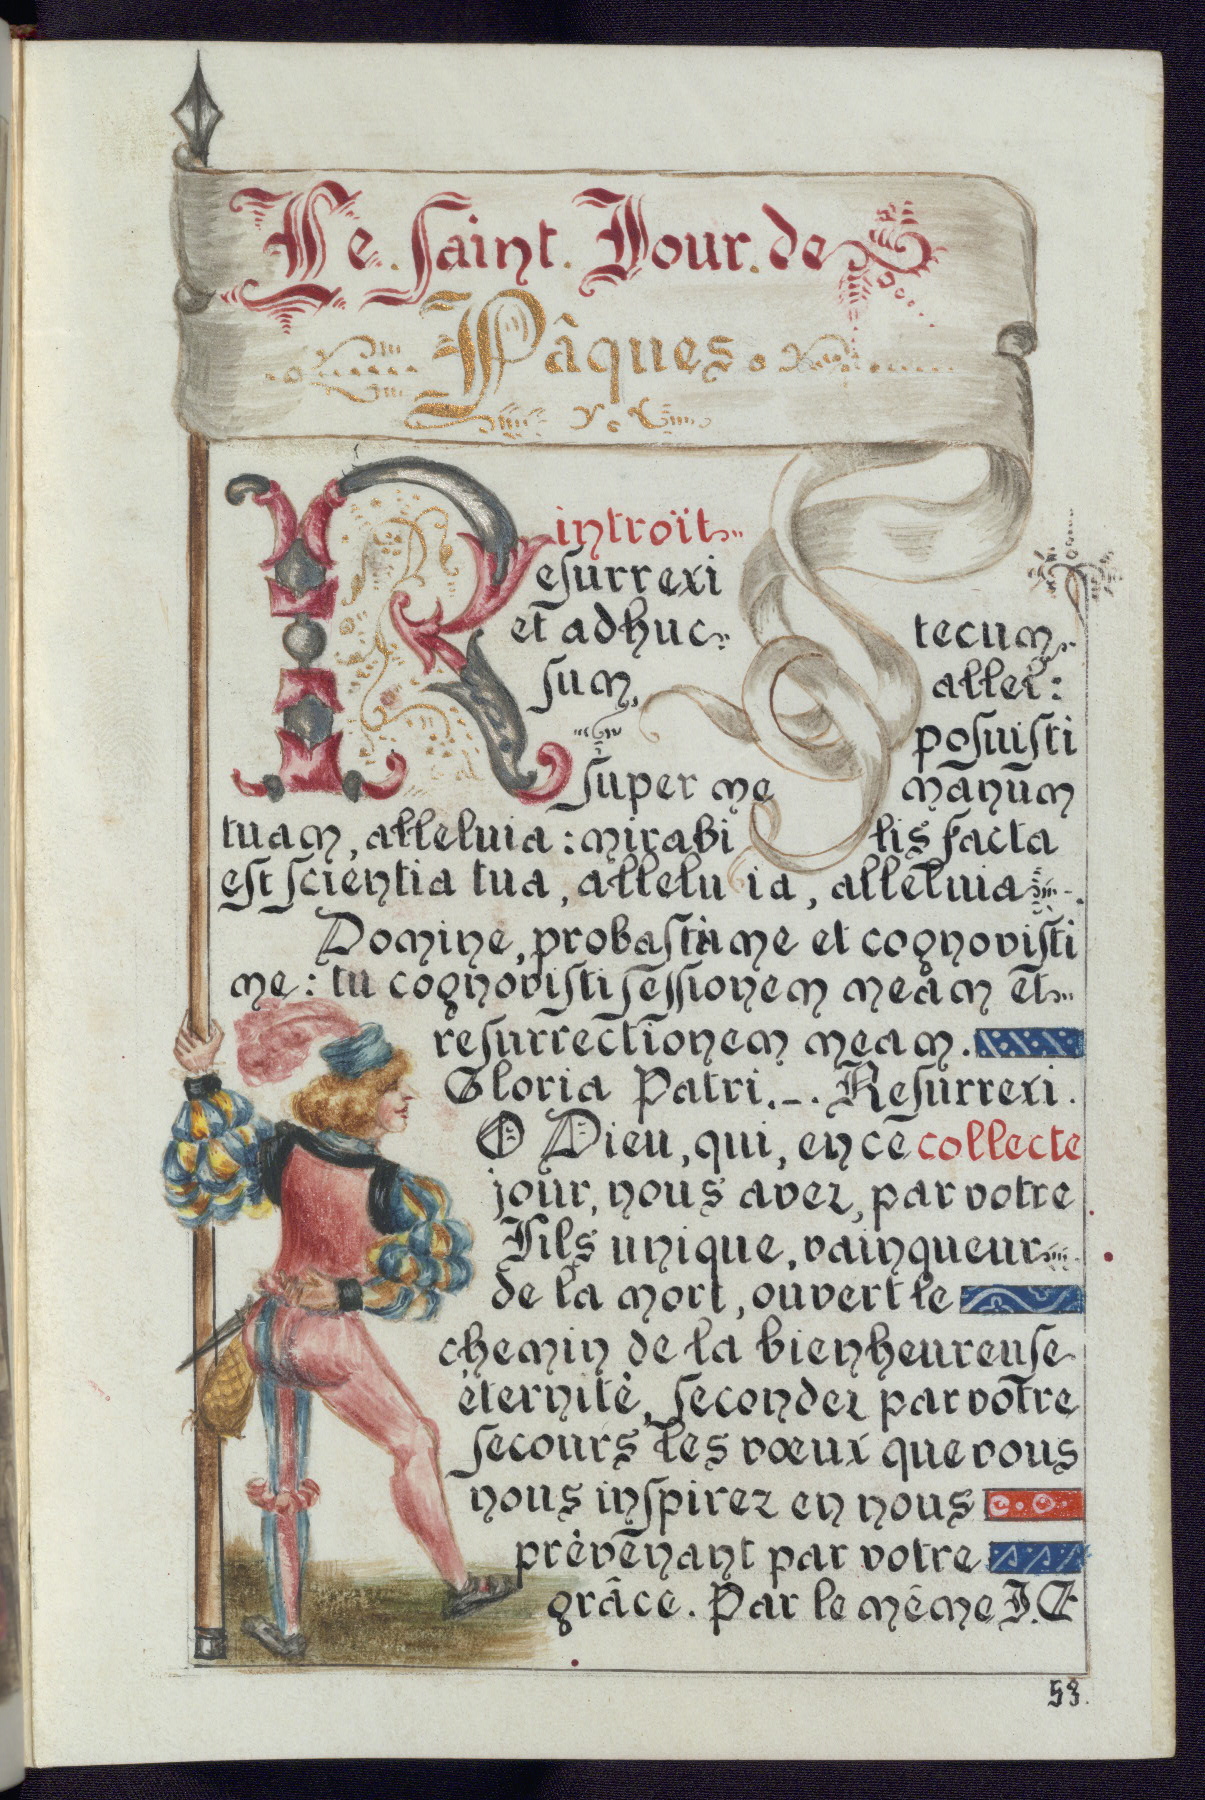 Le. saint. Jour. de
Pâques
introït
Resurrexi
et adhuc tecum
sum, allel:
posuisti
super me manum
tuam, alleluia: mirabilis facta
est scientia tua, alleluia, alleluia
Domine, probasti me et cognovisti
me: tu cognovisti sessionem meam et
resurrectionem meam.
Gloria Patri._. Resurrexi.
O Dieu, qui, en ce collecte
jour, nous avez, par votre
Fils unique, vainqueur
de la mort, ouvert le
chemin de la bienheureuse
éternité, secondez par votre
secours les vœux que vous
nous inspirez en nous
prévenant par votre
grâce. Par le même J.C
53.